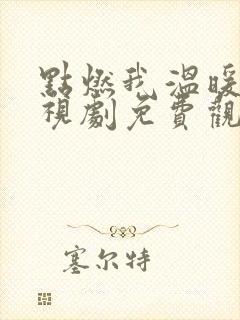 點燃我溫暖
視劇免費觀
塞尔特